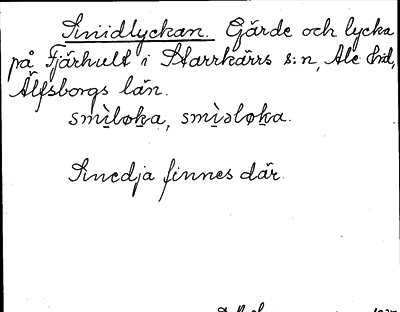 Smidlyckan. Gärde och lycka
på Fjärhult i Starrkärrs s:n, Ale hd,
Älfsborgs län.
smìloka, smìəloka.
Smedja finnes där.